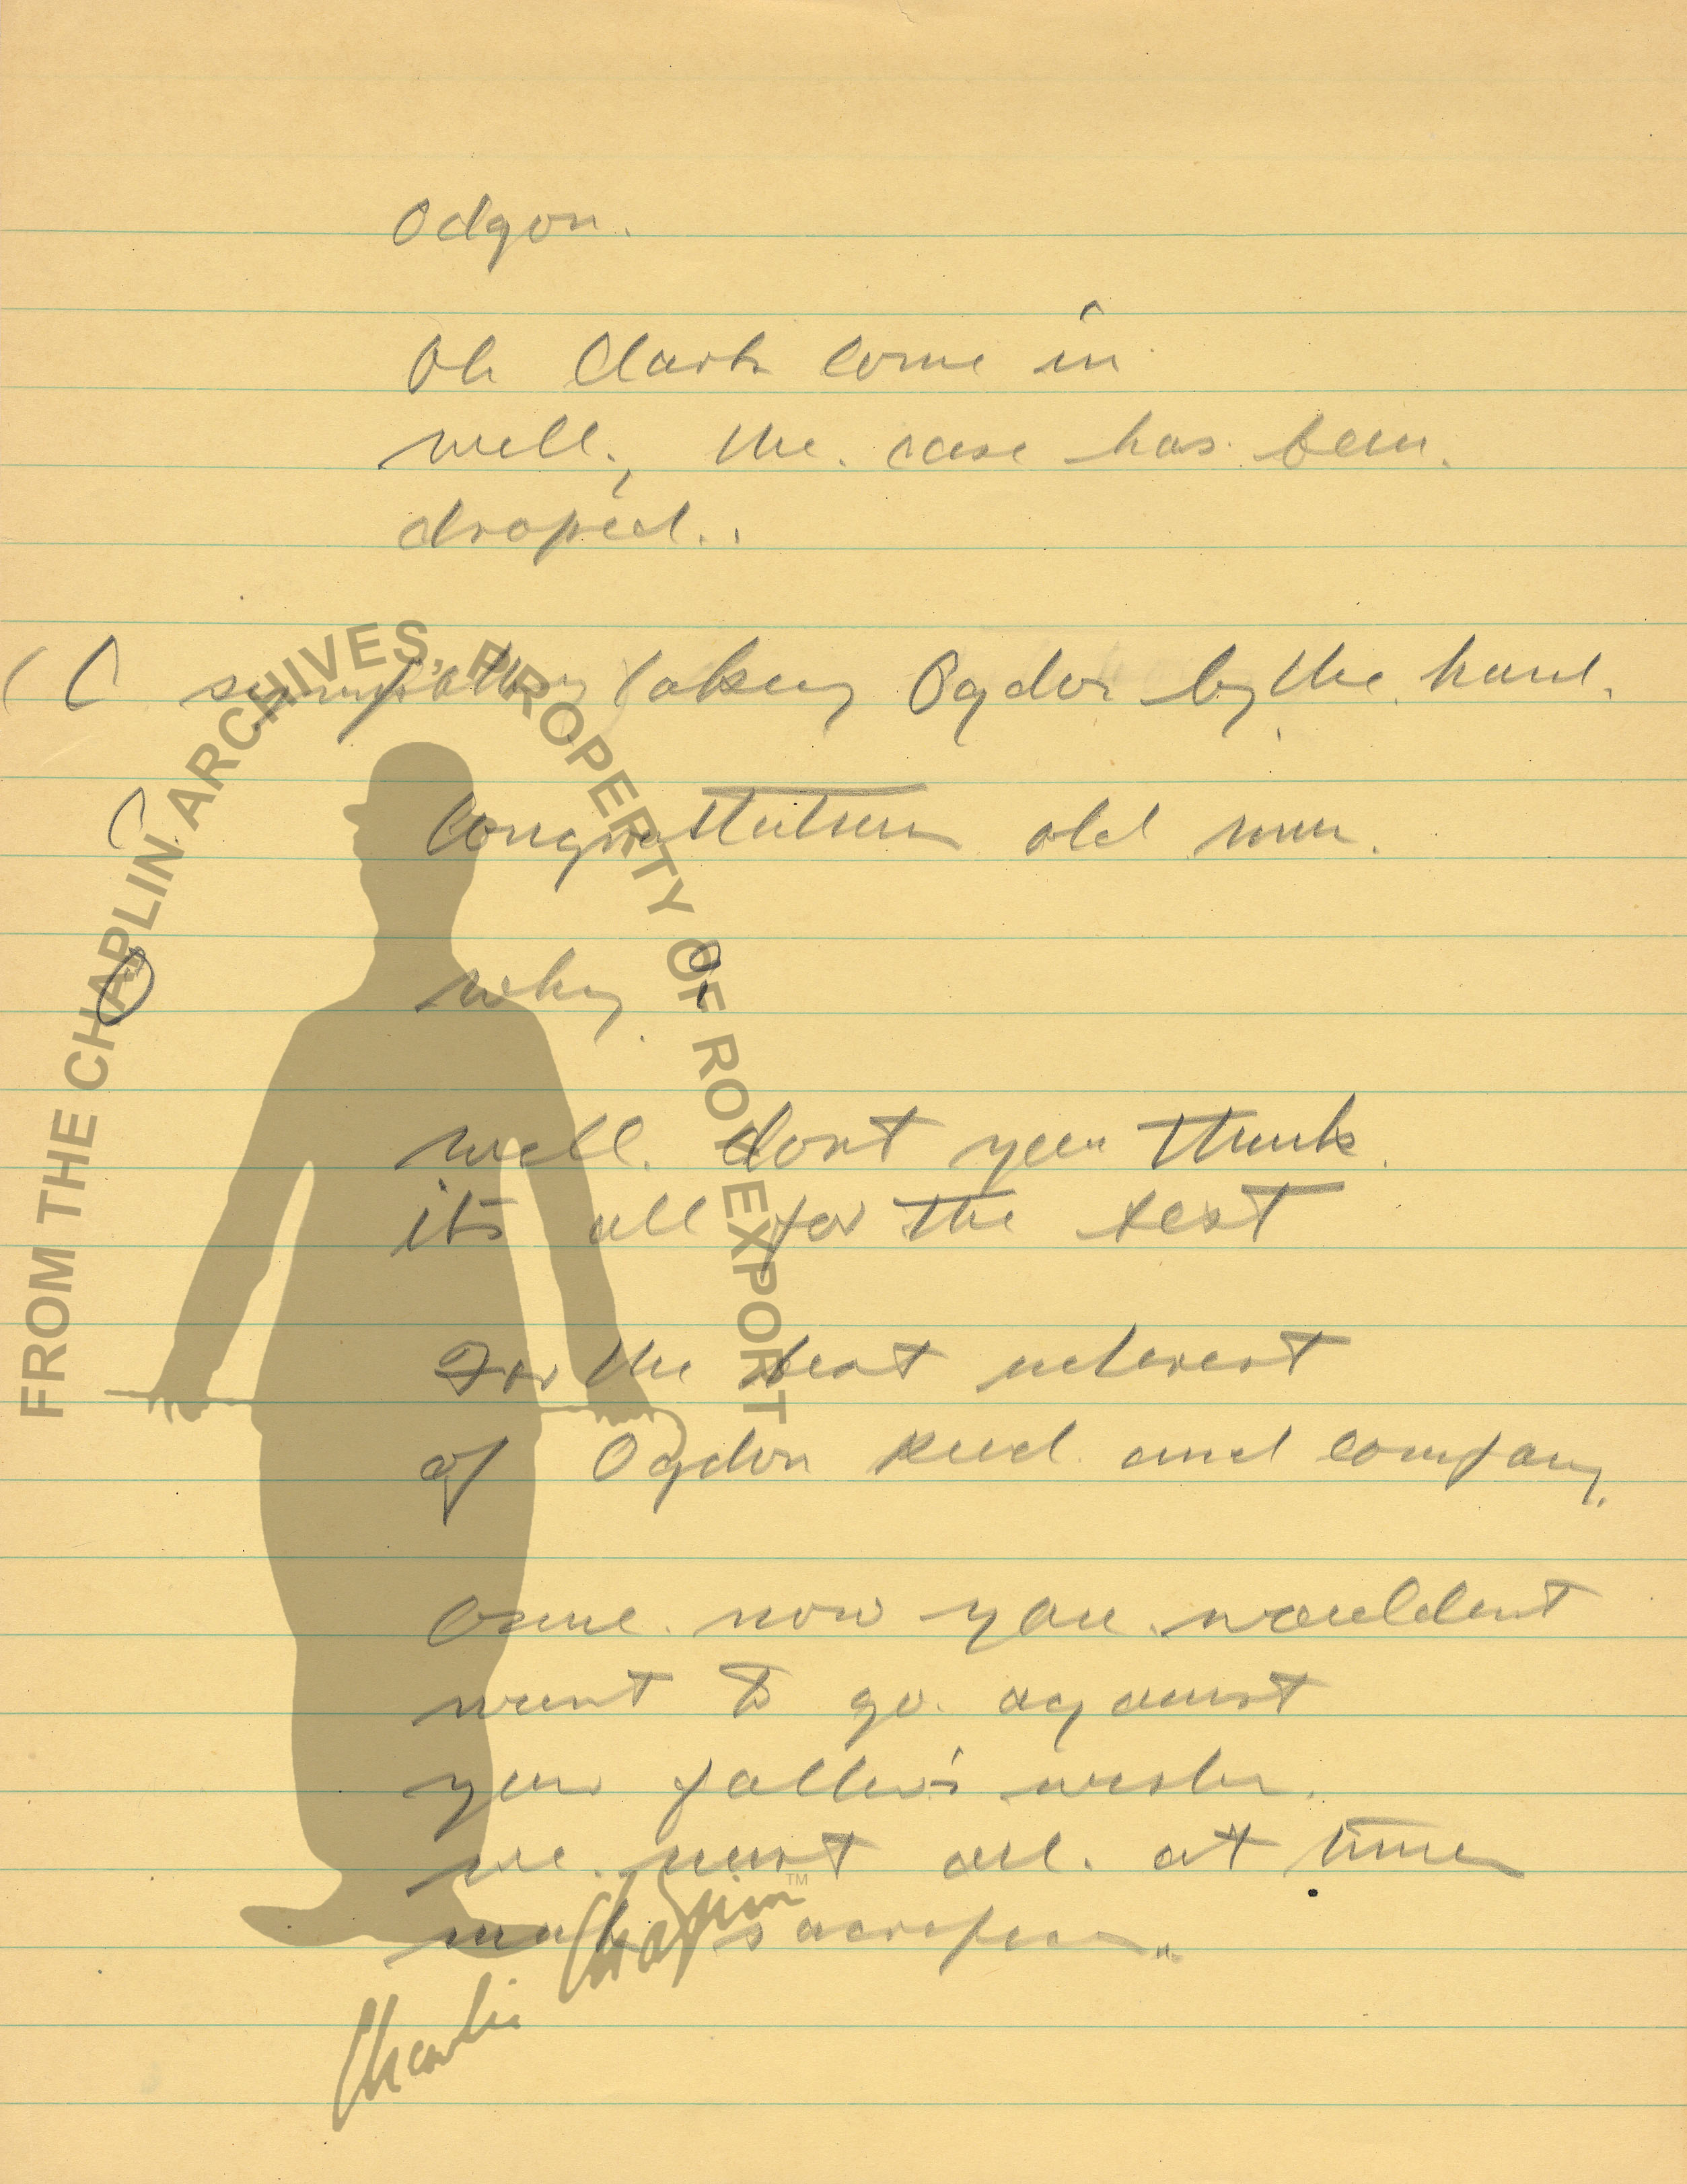 Odgon.
Oh Clark come in
well., the case has been
droped..
( C sympathy taking Ogdon by the hand.
C Congratutions old man.
O why ?
well. dont you think
its all for the best
For the best interest
of Ogdon and company.
Come now you wouldent
want to go against
your father's wishes.
we must all at times
make sacrifices..
FROM THE CHAPLIN ARCHIVES, PROPERTY OF ROY EXPORT
Charlie Chaplin TM